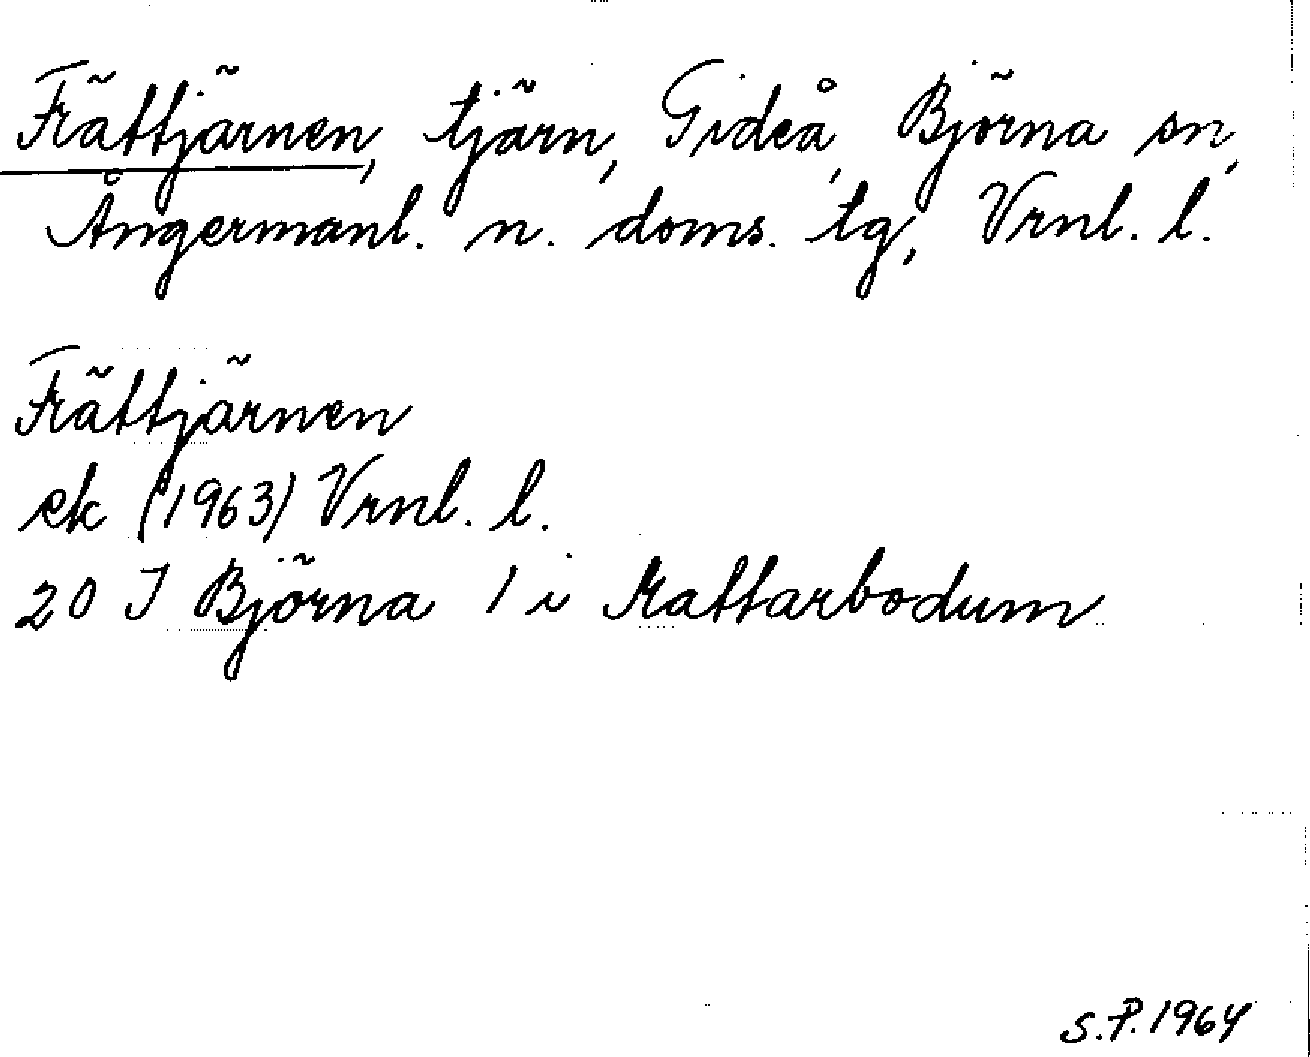 Frättjärnen, tjärn, Gideå, Björna sn,
Ångermanl. n. doms. tg, Vrnl. l.
Frättjärnen
ek (1963) Vrnl. l.
20 I Björna 1 i Kattarbodum
S.P. 1964